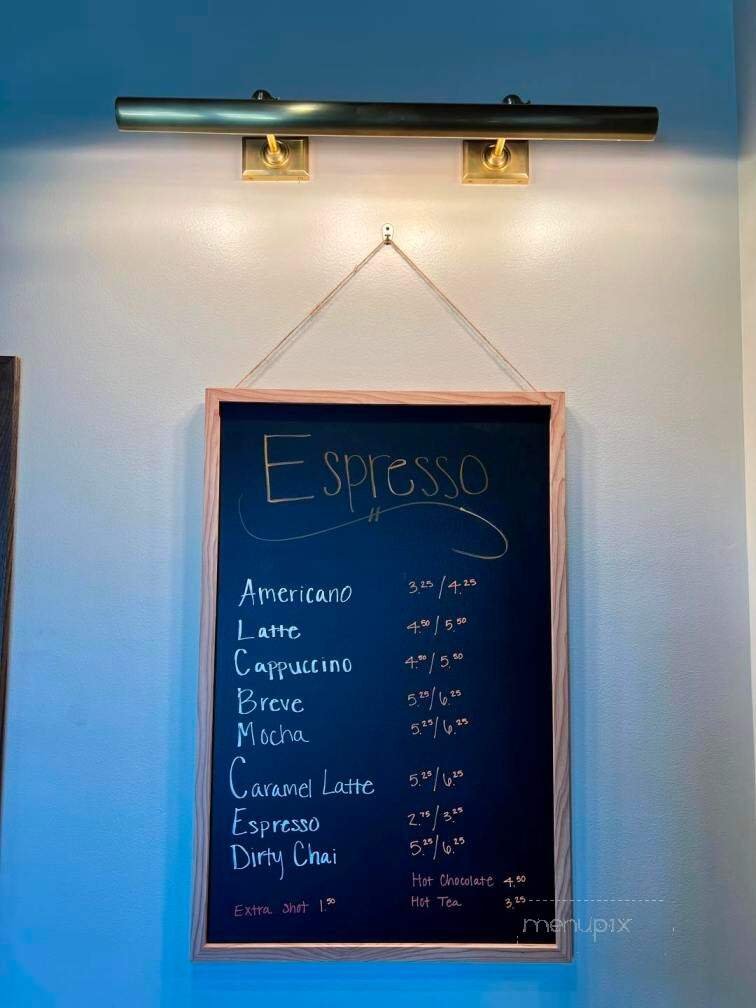 Espresso
Americano 3.25/4.25
Latte 4.50/5.50
Cappuccino 4.50/5.50
Breve 5.25/6.25
Mocha 5.25/6.25
Caramel Latte 5.25/6.25
Espresso 2.75/3.25
Dirty Chai 5.25/6.25
Hot Chocolate 4.50
Extra Shot 1.50 Hot Tea 3.25
menupix